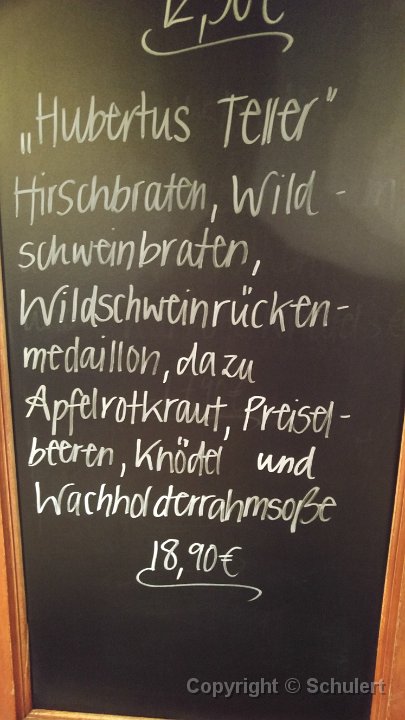 12,50€
„Hubertus Teller"
Hirschbraten, Wild-
schweinbraten,
Wildschweinrücken-
medaillon, dazu
Apfelrotkraut, Preisel-
beeren, Knödel und
Wachholderrahmsoße
18,90€
Copyright © Schulert